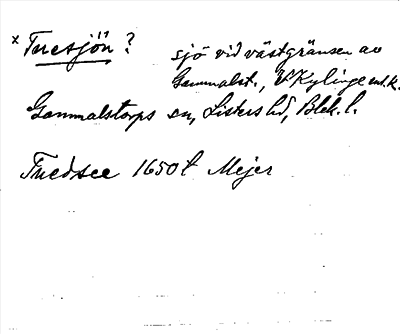 x Tuesjön? sjö vid västgränsen av
Gammalst., V Kylinge
Gammalstorps sn, Listers hd, Blek. l.
Tuedsee 1650 t Mejer